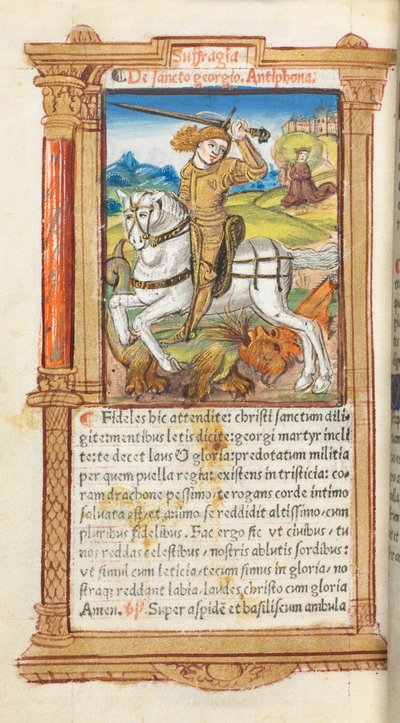 Suffragia
De sancto georgio. Antiphona.
Fideles hic attendite: christi sanctum dili
gite: mentibus letis dicite: georgi martyr incli
te: te decet laus & gloria: predotatum militia
per quem puella regia: existens in tristicia: co-
ram drachone pessimo, te rogans corde intimo
saluata est, et animo se reddidit altissimo, cum
pluribus fidelibus. Fac ergo sic vt ciuibus, tu
nos reddas celestibus, nostris ablutis sordibus:
vt simul cum leticia, tecum simus in gloria, no
straqz reddant labia, laudes christo cum gloria
Amen. Super aspidē et basiliscum ambula